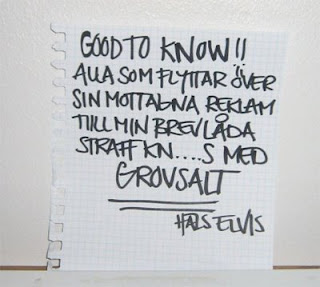 GOOD TO KNOW!!
ALLA SOM FLYTTAR ÖVER
SIN MOTTAGNA REKLAM
TILL MIN BREVLÅDA
STRAFF KN....S MED
GROVSALT
HÄLS ELVIS